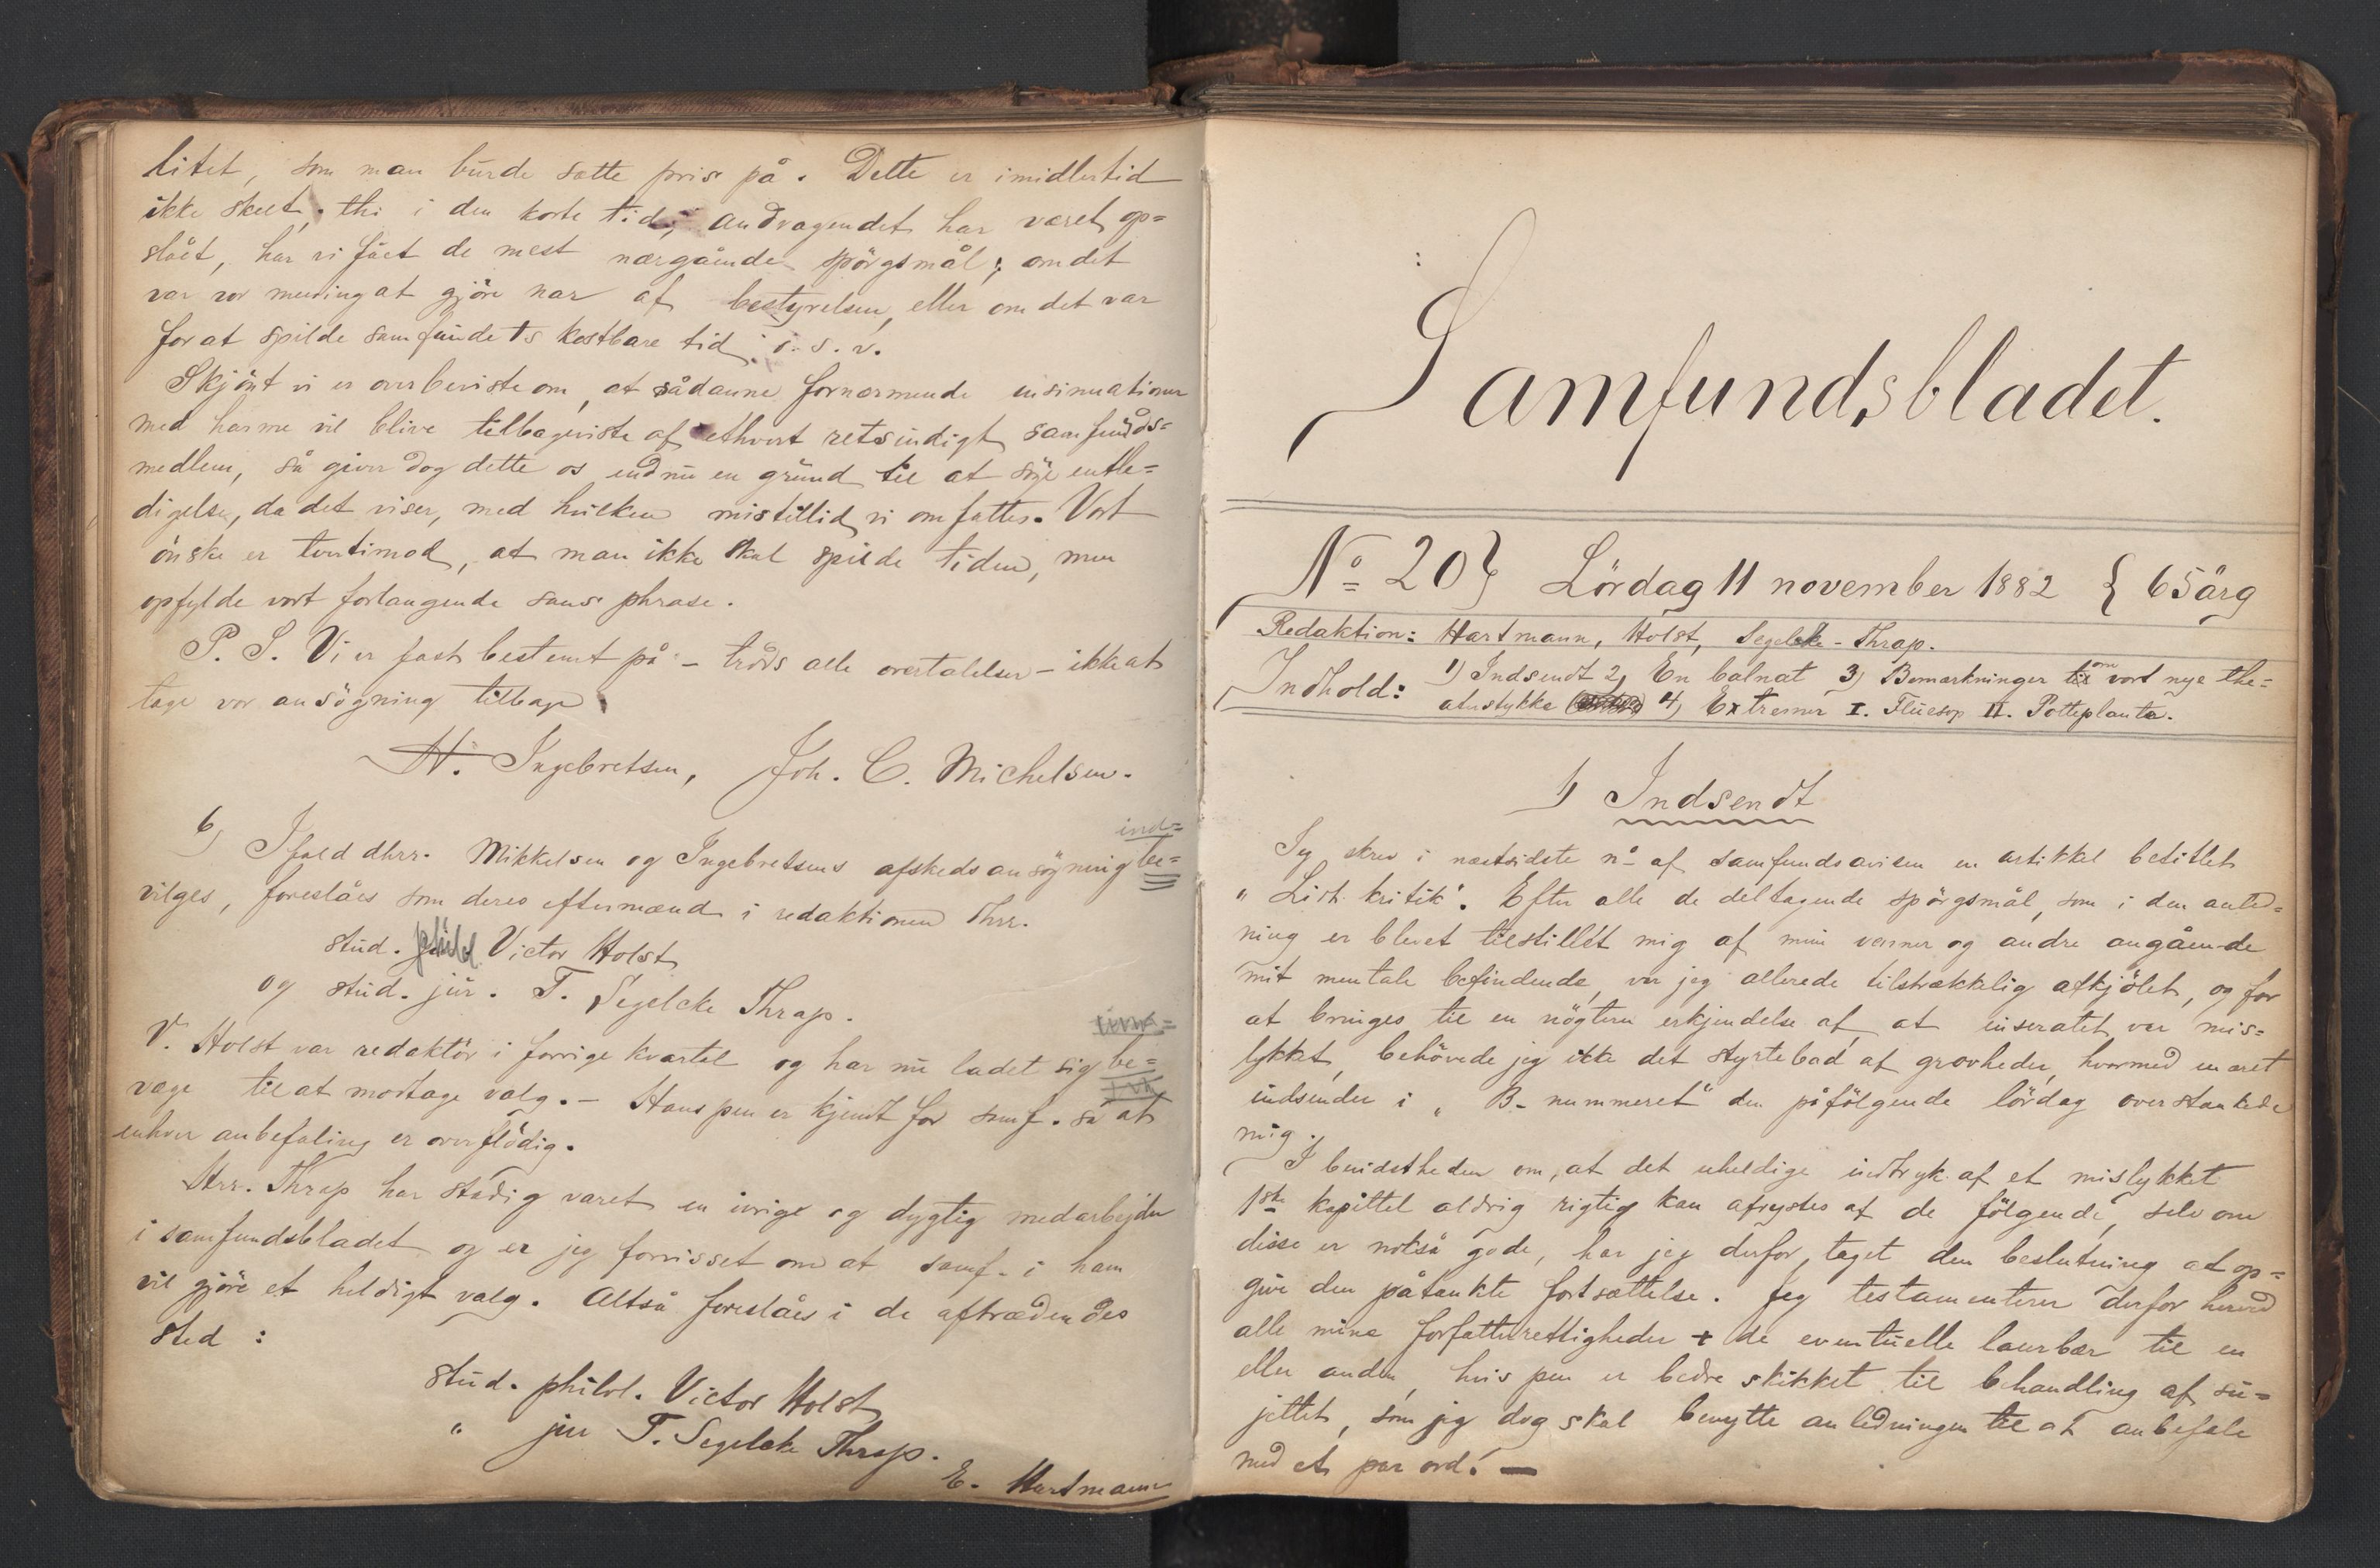 litet, som man burde sætte pris på. Dette er imidlertid
ikke skeet, thi i den korte tid, andragendet har været op=
slået, har vi fået de mest nærgående spörgsmål; om det
var vor mening at gjöre nar af bestyrelsen, eller om det var
for at spilde samfundets kostbare tid o. s. v.
Skjönt vi er overbeviste om, at sådanne fornærmende insinuationer
med harme vil blive tilbageviste af ethvert retsindigt samfunds=
medlem, så giver dog dette os endnu en grund til at söge entle=
digelse, da det viser, med hvilken mistillid vi omfattes. Vort
önske er tvertimod, at man ikke skal spilde tiden, men
opfylde vort forlangende sans phrase.
P. S. Vi er fast bestemt på - trods alle overtalelser - ikke at
tage vor ansögning tilbage.
N. Ingebretsen, Joh. C. Michelsen.
ind=
6) Ifald dhrr. Mikkelsen og Ingebretsens afskedsansögning be=
vilges, foreslåes som deres eftermænd i redaktionen dhrr.
stud. philol. Victor Holst
og stud. jur. T. Segelcke Thrap.
V. Holst var redaktör i forrige kvartal og har nu ladet sig be=
væge til at modtage valg. - Hans pen er kjendt for samf. så at
enhver anbefaling er overflödig.
Hrr. Thrap har stadig været en ivrig og dygtig medarbejder
i samfundsbladet og er jeg forvisset om at samf. i ham
vil gjöre et heldigt valg. Altså foreslåes i de aftrædendes
sted:
stud. philol. Victor Holst
" jur T. Segelcke Thrap.
E. Hartmann
Samfundsbladet.
No 20} Lördag 11 november 1882 { 65 årg
Redaktion: Hartmann, Holst, Segelcke-Thrap.
Indhold: 1) Indsendt 2) En balnat 3) Bemærkninger om vort nye the=
aterstykke 4) Extremer I. Fluesop II. Potteplanta.
1) Indsendt
Jeg skrev i næstsidste no af samfundsavisen en artikkel betitlet
"Lidt kritik". Efter alle de deltagende spörgsmål, som i den anled=
ning er blevet tilstillet mig af mine venner og andre angående
mit mentale befindende, var jeg allerede tilstrækkelig afkjölet, og for
at bringes til en nögtern erkjendelse af, at inseratet var mis=
lykket, behövede jeg ikke det styrtebad af grovheder, hvormed en æret
indsender i "B-nummeret" den påfölgende lördag overstænkede
mig.
I bevidstheden om, at det uheldige indtryk af et mislykket
1ste kapittel aldrig rigtig kan afrystes af de fölgende, selv om
disse er nokså gode, har jeg derfor taget den beslutning at op=
give den påtænkte fortsættelse. Jeg testamenterer derfor herved
alle mine forfatterrettigheder + de eventuelle laurbær til en
eller anden, hvis pen er bedre skikket til behandling af su=
jettet, som jeg dog skal benytte anledningen til at anbefale
med et par ord. —